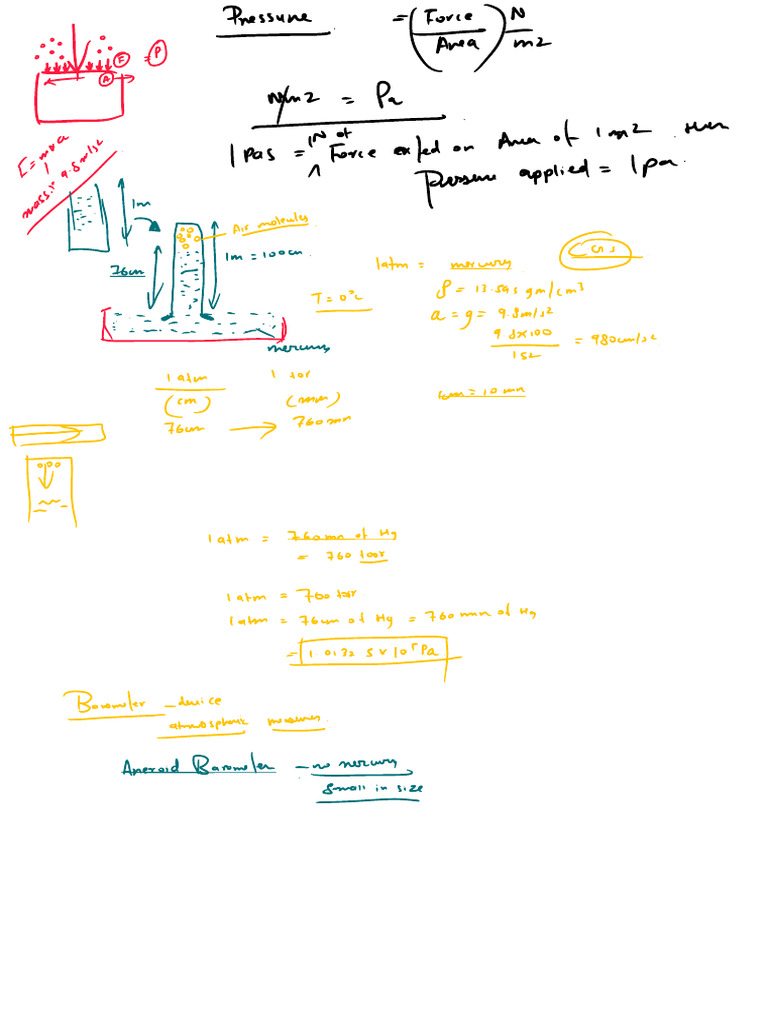 Pressure = (Force / Area) N / m2
N/m2 = Pa
1 Pas = 1N of Force exfed on Area of 1 m2 then
pressure applied = 1 pa.
F
= P
A
F = m x a
mass x 9.8 m/s2
1m
76cm
Air molecules
1m = 100cm
T = 0°C
mercury
1 atm = mercury
CGS
ρ = 13.595 gm/cm3
a = g = 9.8 m/s2
9.8x100 / 1 s2 = 980 cm/s2
1cm = 10 mm
1 atm 1 tor
(cm) (mm)
76cm → 760mm
1 atm = 760 mm of Hg
= 760 torr
1 atm = 760 torr
1 atm = 76cm of Hg = 760 mm of Hg
= 1.01325 x 10⁵ Pa
Barometer - device
atmospheric measures
Aneroid Barometer - no mercury
small in size